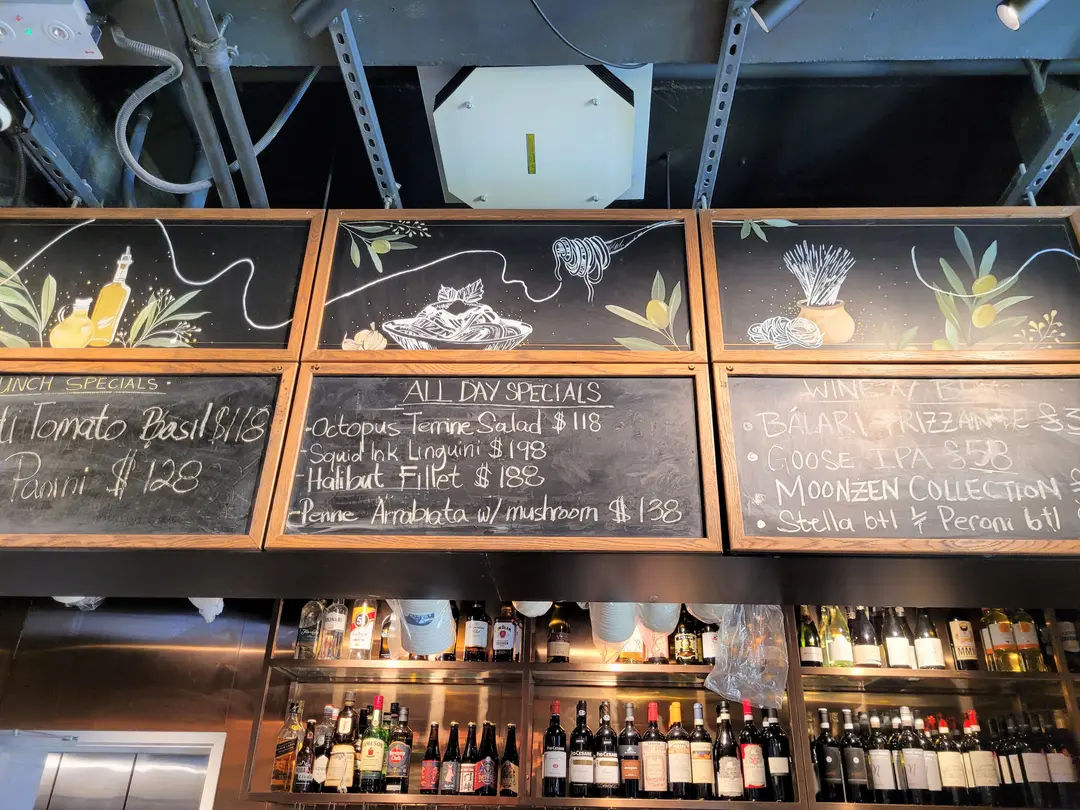 UNCH SPECIALS
ti Tomato Basil $118
Panini $128
ALL DAY SPECIALS
-Octopus Terrine Salad $118
-Squid Ink Linguini $198
-Halibut Fillet $188
-Penne Arrabiata w/ mushroom $138
• BÁLARI FRIZZANTE $3
• GOOSE IPA $58
MOONZEN COLLECTION $
• Stella btl & Peroni btl $
JAMESON